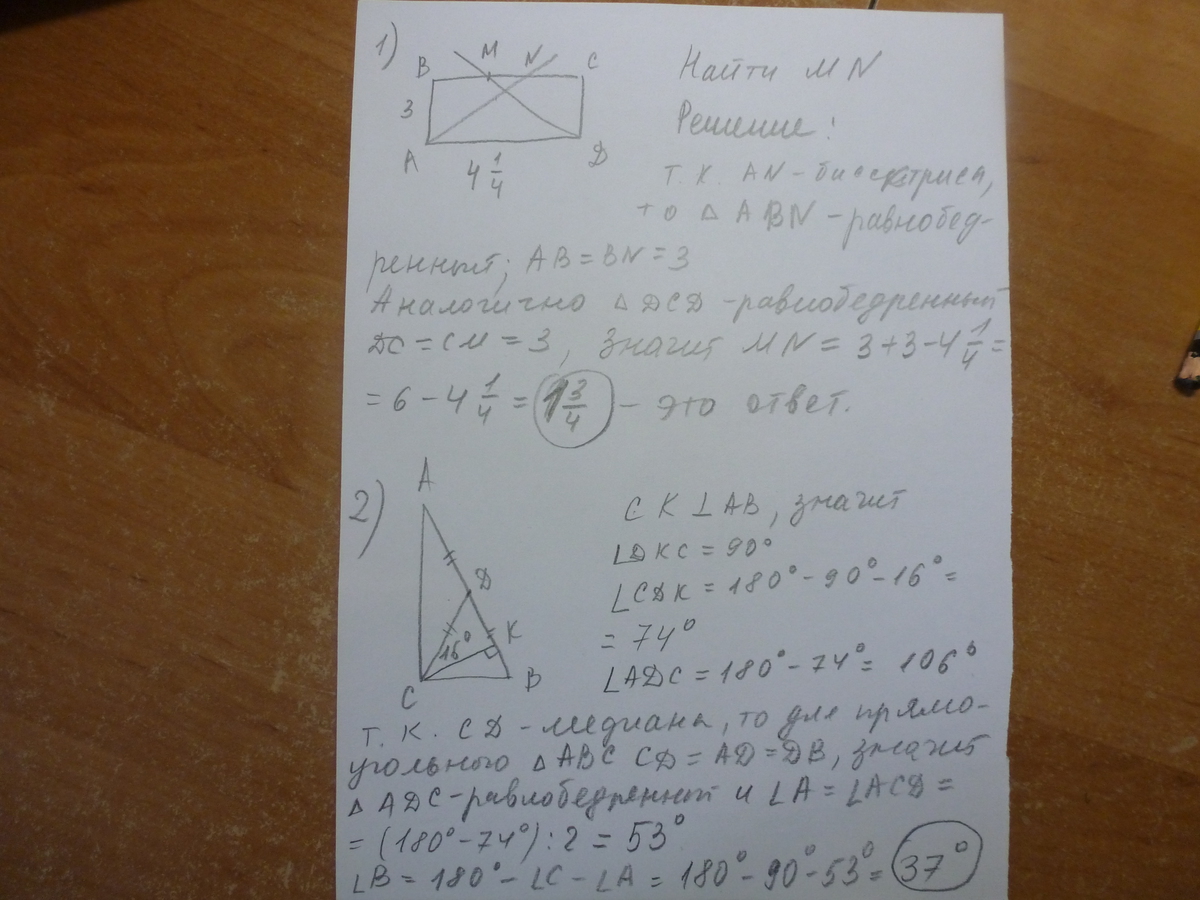 1)
B M N C
3
A D
4 1/4
Найти MN
Решение:
т.к. AN - биссектриса,
то △ ABN - равнобед-
ренный; AB = BN = 3
Аналогично △ DCD - равнобедренный
DC = CM = 3, значит MN = 3+3-4 1/4 =
= 6 - 4 1/4 = 1 3/4 - это ответ.
2)
A
D
K
16°
C B
CK ⊥ AB, значит
∠DKC = 90°
∠CDK = 180° - 90° - 16° =
= 74°
∠ADC = 180° - 74° = 106°
т.к. CD - медиана, то для прямо-
угольного △ ABC CD = AD = DB, значит
△ ADC - равнобедренный и ∠A = ∠ACD =
= (180° - 74°) : 2 = 53°
∠B = 180° - ∠C - ∠A = 180° - 90° - 53° = 37°